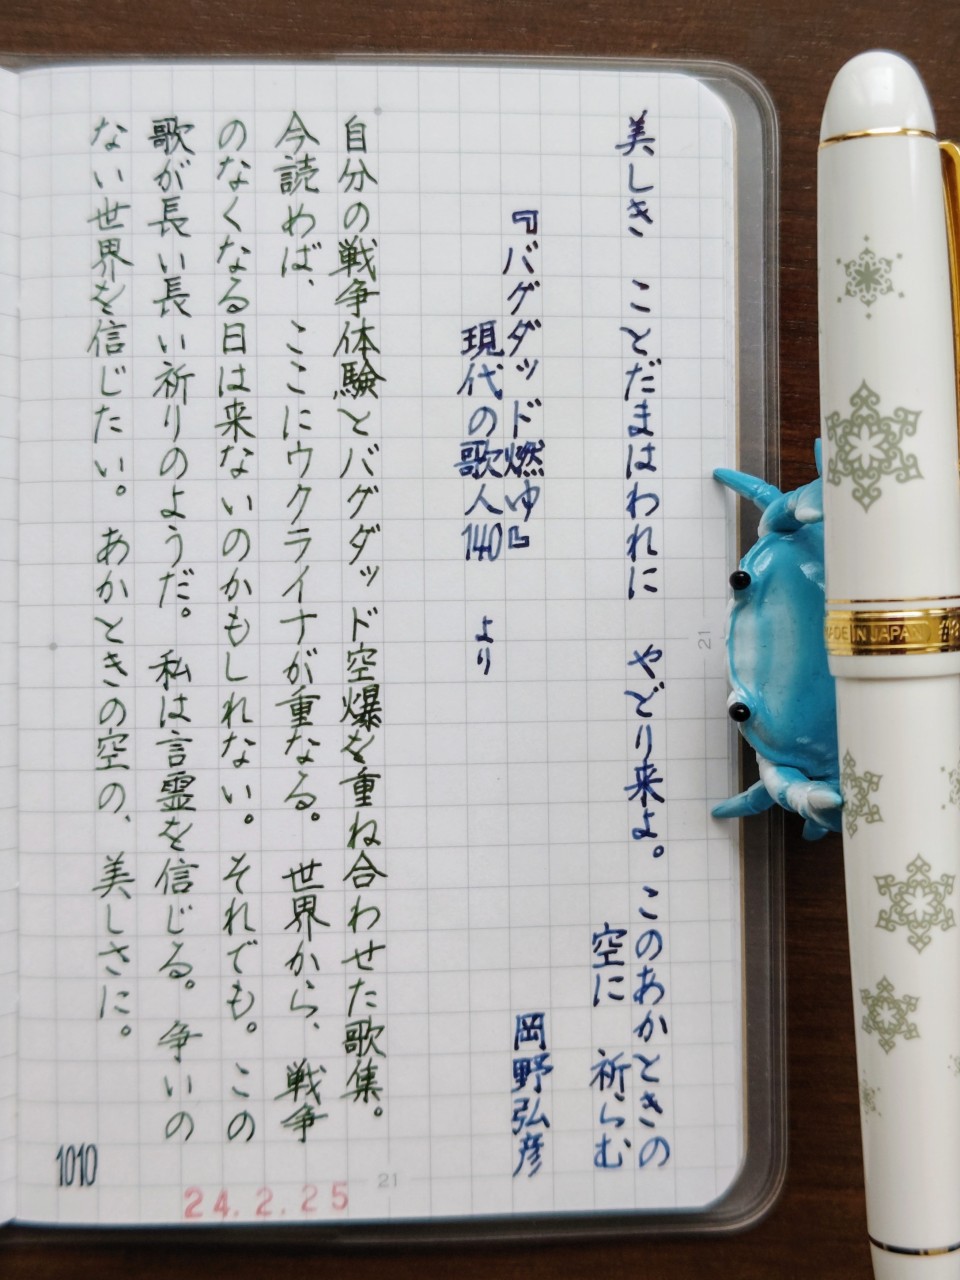 美しき ことだまはわれに やどり来よ。このあかときの
空に 祈らむ
『バグダッド燃ゆ』 岡野弘彦
現代の歌人140 より
自分の戦争体験とバグダッド空爆を重ね合わせた歌集。
今読めば、ここにウクライナが重なる。世界から、戦争
のなくなる日は来ないのかもしれない。それでも。この
歌が長い長い祈りのようだ。私は言霊を信じる。争いの
ない世界を信じたい。あかときの空の、美しさに。
1010
24.2.25
21
21
MADE IN JAPAN